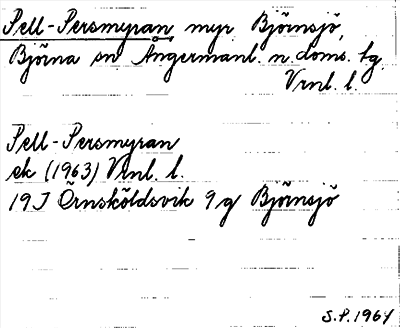 Pell-Persmyran myr Björnsjö,
Björna sn Ångermanl. n. doms. tg
Vrnl. l.
Pell-Persmyran
ek (1963) Vrnl. l.
19J Örnsköldsvik 9g Björnsjö
S.P. 1964